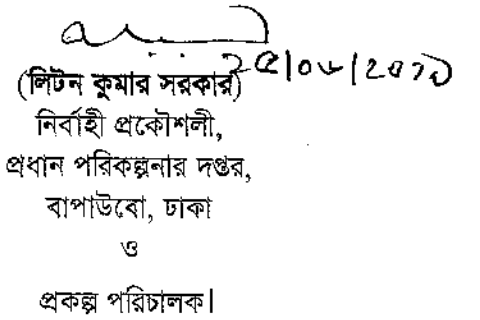 (লিটন কুমার সরকার)
নির্বাহী প্রকৌশলী,
প্রধান পরিকল্পনার দপ্তর,
বাপাউবো, ঢাকা
ও
প্রকল্প পরিচালক।